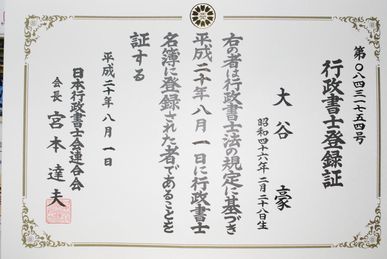 第〇八四三一七五四号
行政書士登録証
大谷豪
昭和四十六年二月二十八日生
右の者は行政書士法の規定に基づき
平成二十年八月一日に行政書士
名簿に登録された者であることを
証する
平成二十年八月一日
日本行政書士会連合会
会長 宮本達夫